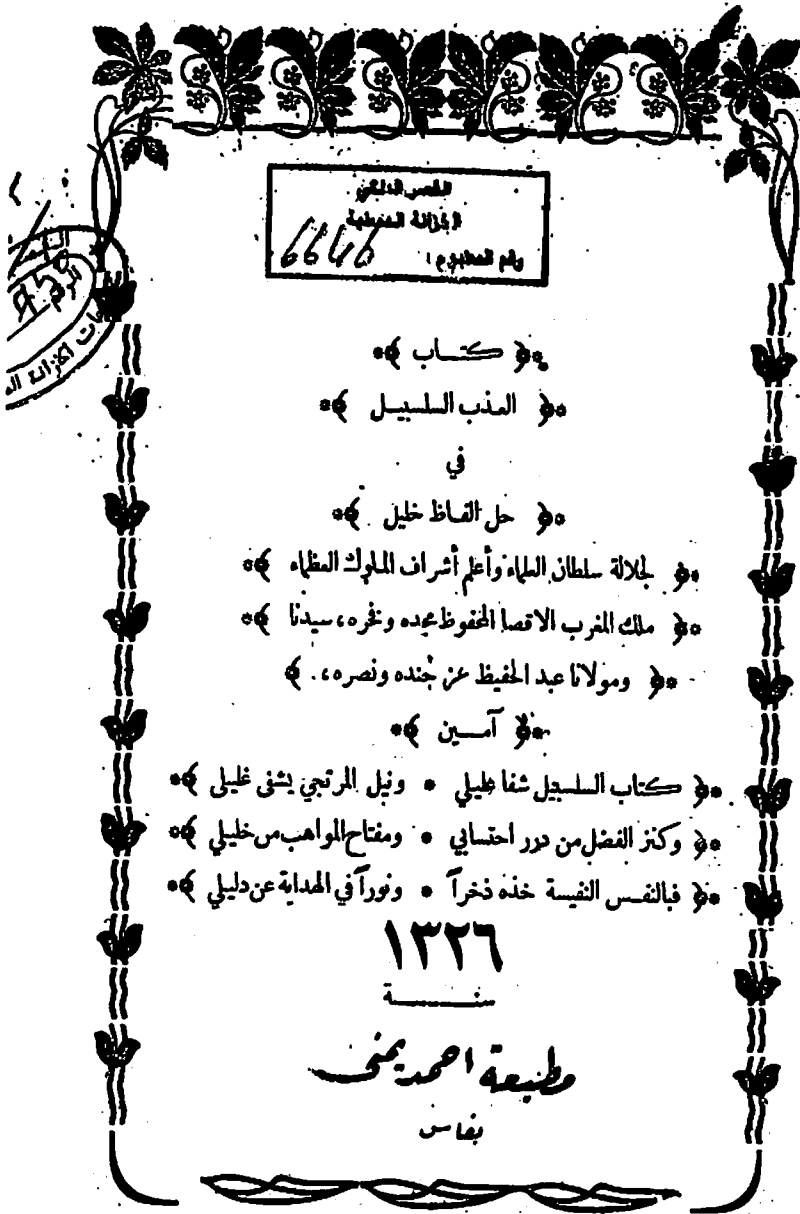 القصر الملكي
الخزانة الحسنية
رقم المطبوع : 6646
كتاب
العذب السلسبيل
في
حل الفاظ خليل
لجلالة سلطان العلماء وأعلم أشراف الملوك العظماء
ملك المغرب الاقصا المحفوظ مجده وفخره، سيدنا
ومولانا عبد الحفيظ عز جنده ونصره، .
آمـــين
كتاب السلسبيل شفا عليلي * ونيل المرتجي يشفى غليلى
وكنز الفضل من درر احتسابي * ومفتاح المواهب من خليلي
فبالنفس النفيسة خذه ذخراً * ونوراً في الهداية عن دليلي
١٣٢٦
سنــــــة
مطبعة احمد يمنى
بفاس